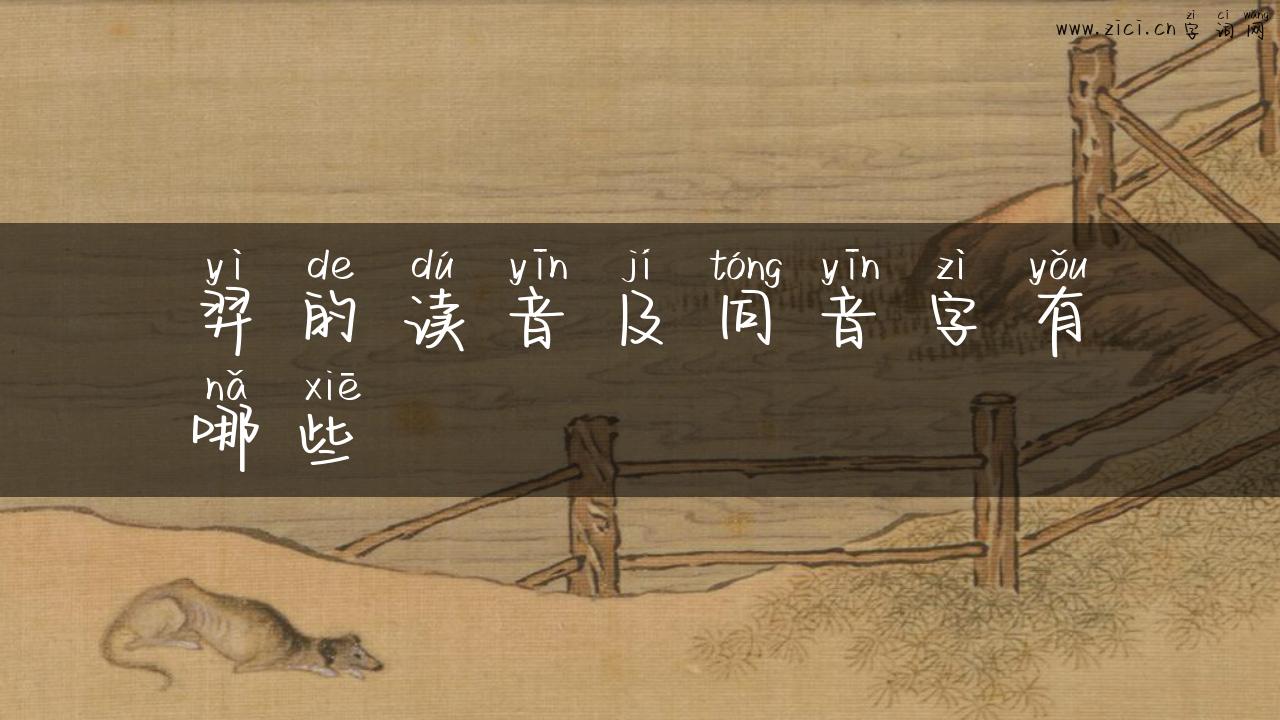 zì cí wang
www.zici.cn 字 词 网
yì de dú yīn jí tóng yīn zì yǒu
羿 的 读 音 及 同 音 字 有
nǎ xiē
哪 些